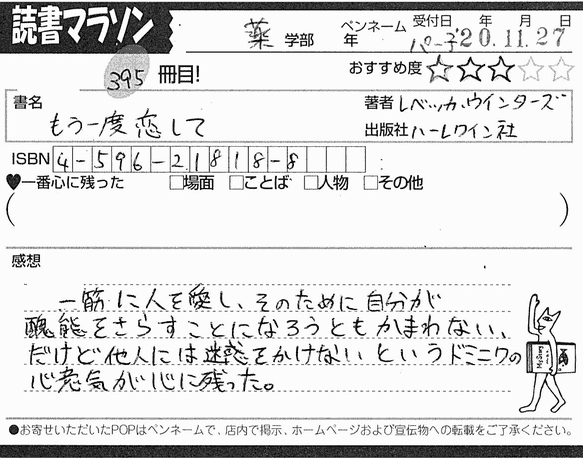 読書マラソン
薬 学部 年 ペンネーム パー子 受付日 年 月 日 '20.11.27
395 冊目! おすすめ度 ☆☆☆☆☆
書名 もう一度恋して
著者 レベッカ・ウインターズ
出版社 ハーレクイン社
ISBN 4-596-21818-8
♥一番心に残った □場面 □ことば □人物 □その他
( )
感想
一筋に人を愛し、そのために自分が
醜態をさらすことになろうともかまわない、
だけど他人には迷惑をかけないというドミニクの
心意気が心に残った。
●お寄せいただいたPOPはペンネームで、店内で掲示、ホームページおよび宣伝物への転載をご了承ください。